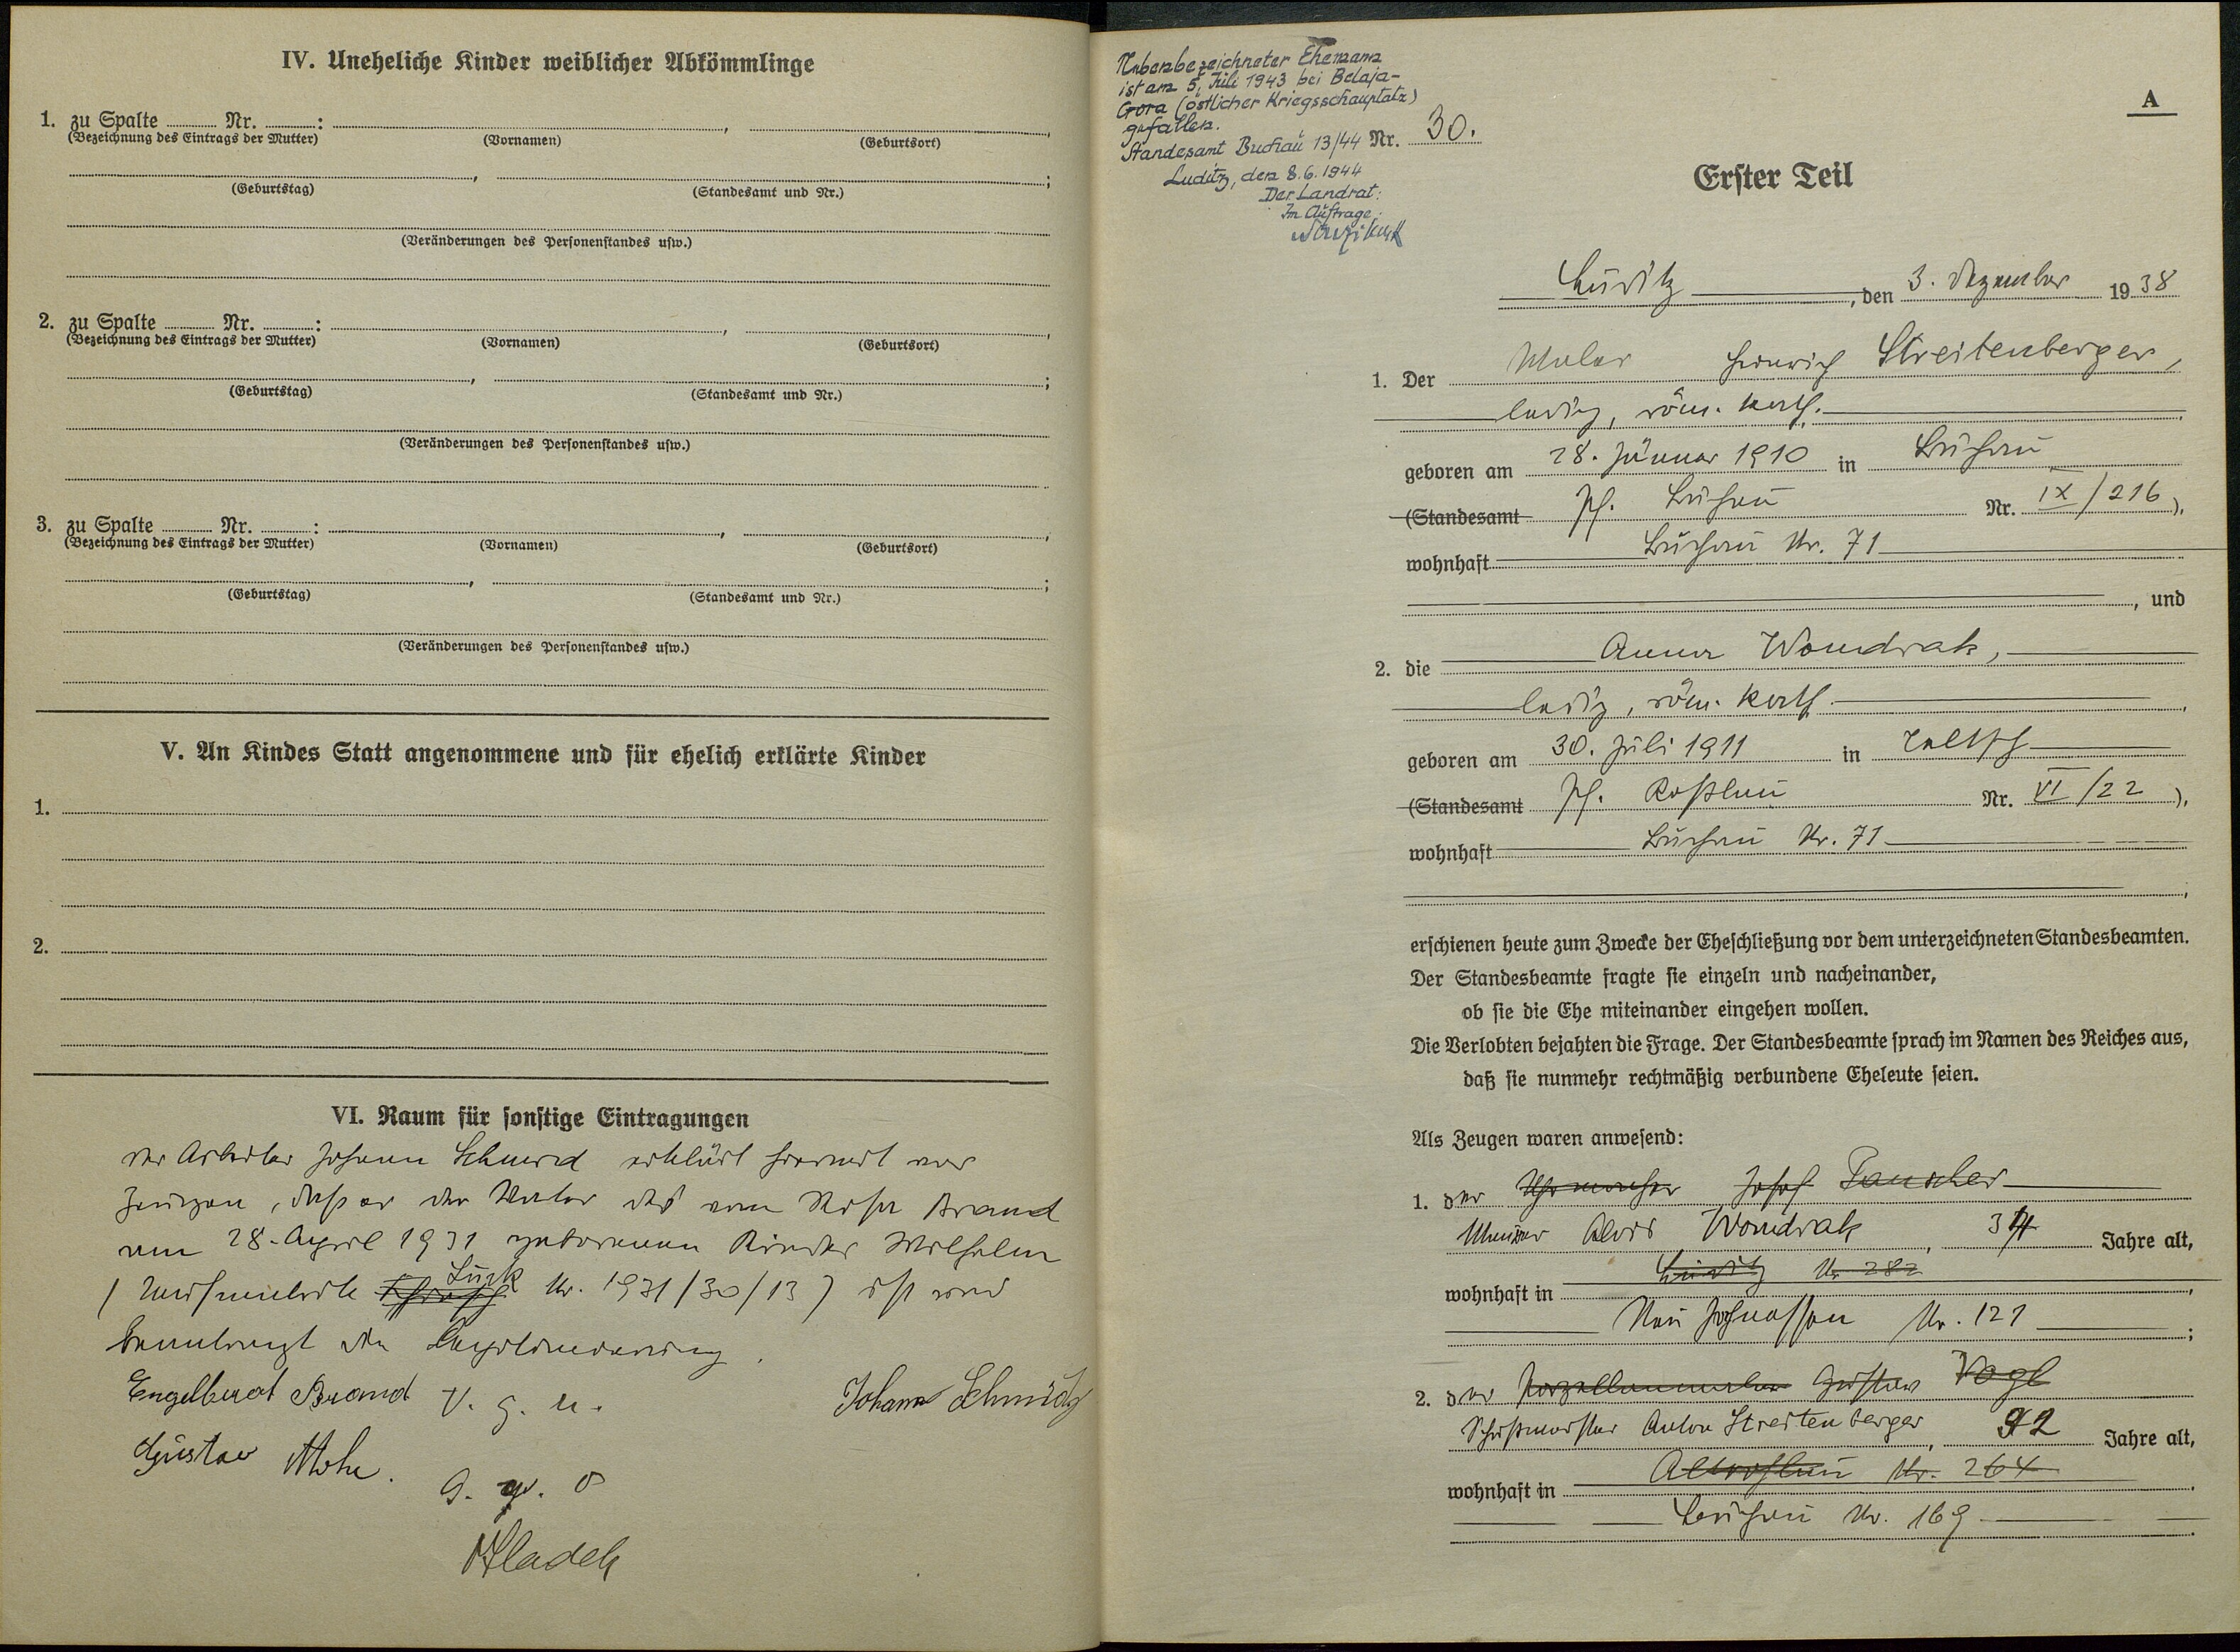 IV. Uneheliche Kinder weiblicher Abkömmlinge
1. zu Spalte ........ Nr. ........:
(Bezeichnung des Eintrags der Mutter) (Vornamen) (Geburtsort)
(Geburtstag) (Standesamt und Nr.)
(Veränderungen des Personenstandes usw.)
2. zu Spalte ........ Nr. ........:
(Bezeichnung des Eintrags der Mutter) (Vornamen) (Geburtsort)
(Geburtstag) (Standesamt und Nr.)
(Veränderungen des Personenstandes usw.)
3. zu Spalte ........ Nr. ........:
(Bezeichnung des Eintrags der Mutter) (Vornamen) (Geburtsort)
(Geburtstag) (Standesamt und Nr.)
(Veränderungen des Personenstandes usw.)
V. An Kindes Statt angenommene und für ehelich erklärte Kinder
1.
2.
VI. Raum für sonstige Eintragungen
Der Arbeiter Johann Schmid erklärt hiermit vor
Zeugen, daß er der Vater des von Rosa Brand
am 28. April 1931 geborenen Kindes Wilhelm
(Luck Nr. 1931/30/13) ist und
beantragt die Legitimierung.
Engelbert Brand V. g. u. Johann Schmidt
Gustav
G. g. o
Hladek
Nebenbezeichneter Ehemann
ist am 5. Juli 1943 bei Belaja-
Gora (östlicher Kriegsschauplatz)
gefallen.
Standesamt Buchau 13/44 Nr. 30.
Luditz, den 8.6.1944
Der Landrat:
Im Auftrage:
A
Erster Teil
Luditz, den 3. Dezember 1938
1. Der Maler Heinrich Streitenberger,
ledig, röm. kath.
geboren am 28. Jänner 1910 in Buchau
(Standesamt Pf. Buchau Nr. IX/216),
wohnhaft Buchau Nr. 71
, und
2. die Anna Wondrak,
ledig, röm. kath.
geboren am 30. Juli 1911 in
(Standesamt Pf. Nr. VI/22),
wohnhaft Buchau Nr. 71
erschienen heute zum Zwecke der Eheschließung vor dem unterzeichneten Standesbeamten.
Der Standesbeamte fragte sie einzeln und nacheinander,
ob sie die Ehe miteinander eingehen wollen.
Die Verlobten bejahten die Frage. Der Standesbeamte sprach im Namen des Reiches aus,
daß sie nunmehr rechtmäßig verbundene Eheleute seien.
Als Zeugen waren anwesend:
1. der Uhrmacher Josef Tauscher
Maurer Alois Wondrak, 34 Jahre alt,
wohnhaft in Luditz Nr. 282
Nr. 121;
2. der Porzellanmaler Gustav Vogl
Anton Streitenberger, 42 Jahre alt,
wohnhaft in Altrohlau Nr. 264
Buchau Nr. 169